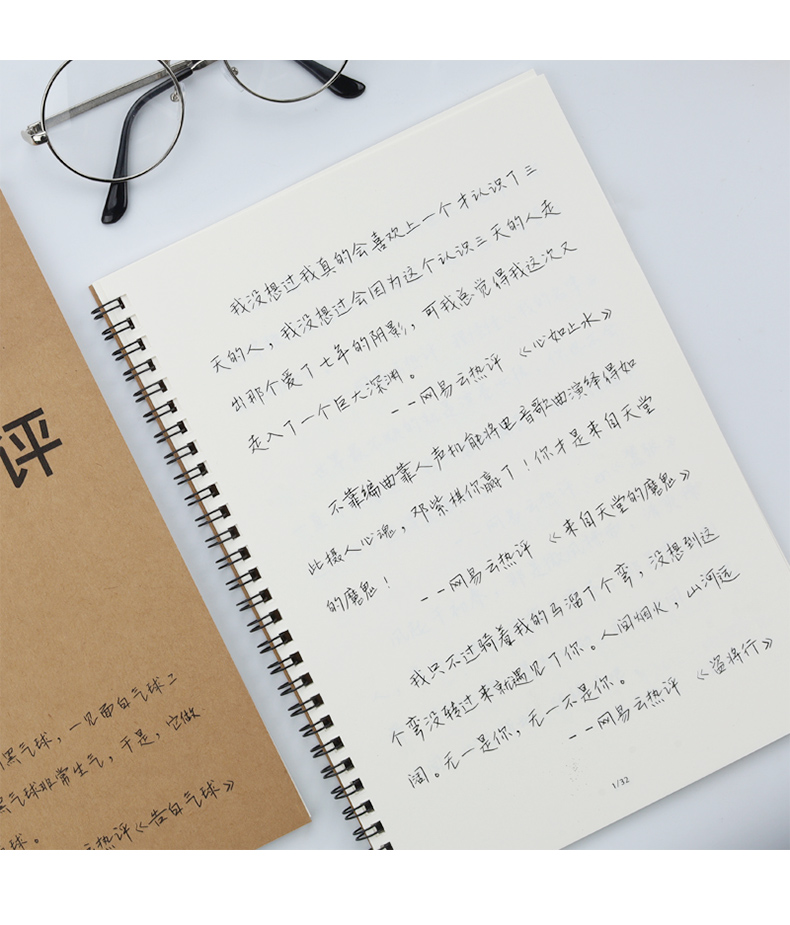 我没想过我真的会喜欢上一个才认识了三
天的人，我没想过会因为这个认识三天的人走
出那个爱了七年的阴影，可我总觉得我这次又
走入了一个巨大深渊。
--网易云热评 《心如止水》
不靠编曲靠人声机能将电音歌曲演绎得如
此摄人心魂，邓紫棋你赢了！你才是来自天堂
的魔鬼！
--网易云热评 《来自天堂的魔鬼》
我只不过骑着我的马溜了个弯，没想到这
个弯没转过来就遇见了你。人间烟火，山河远
阔。无一是你，无一不是你。
--网易云热评 《盗将行》
1/32
评
黑气球，一见面白气球二
黑气球非常生气，于是，它做
球。
热评《告白气球》